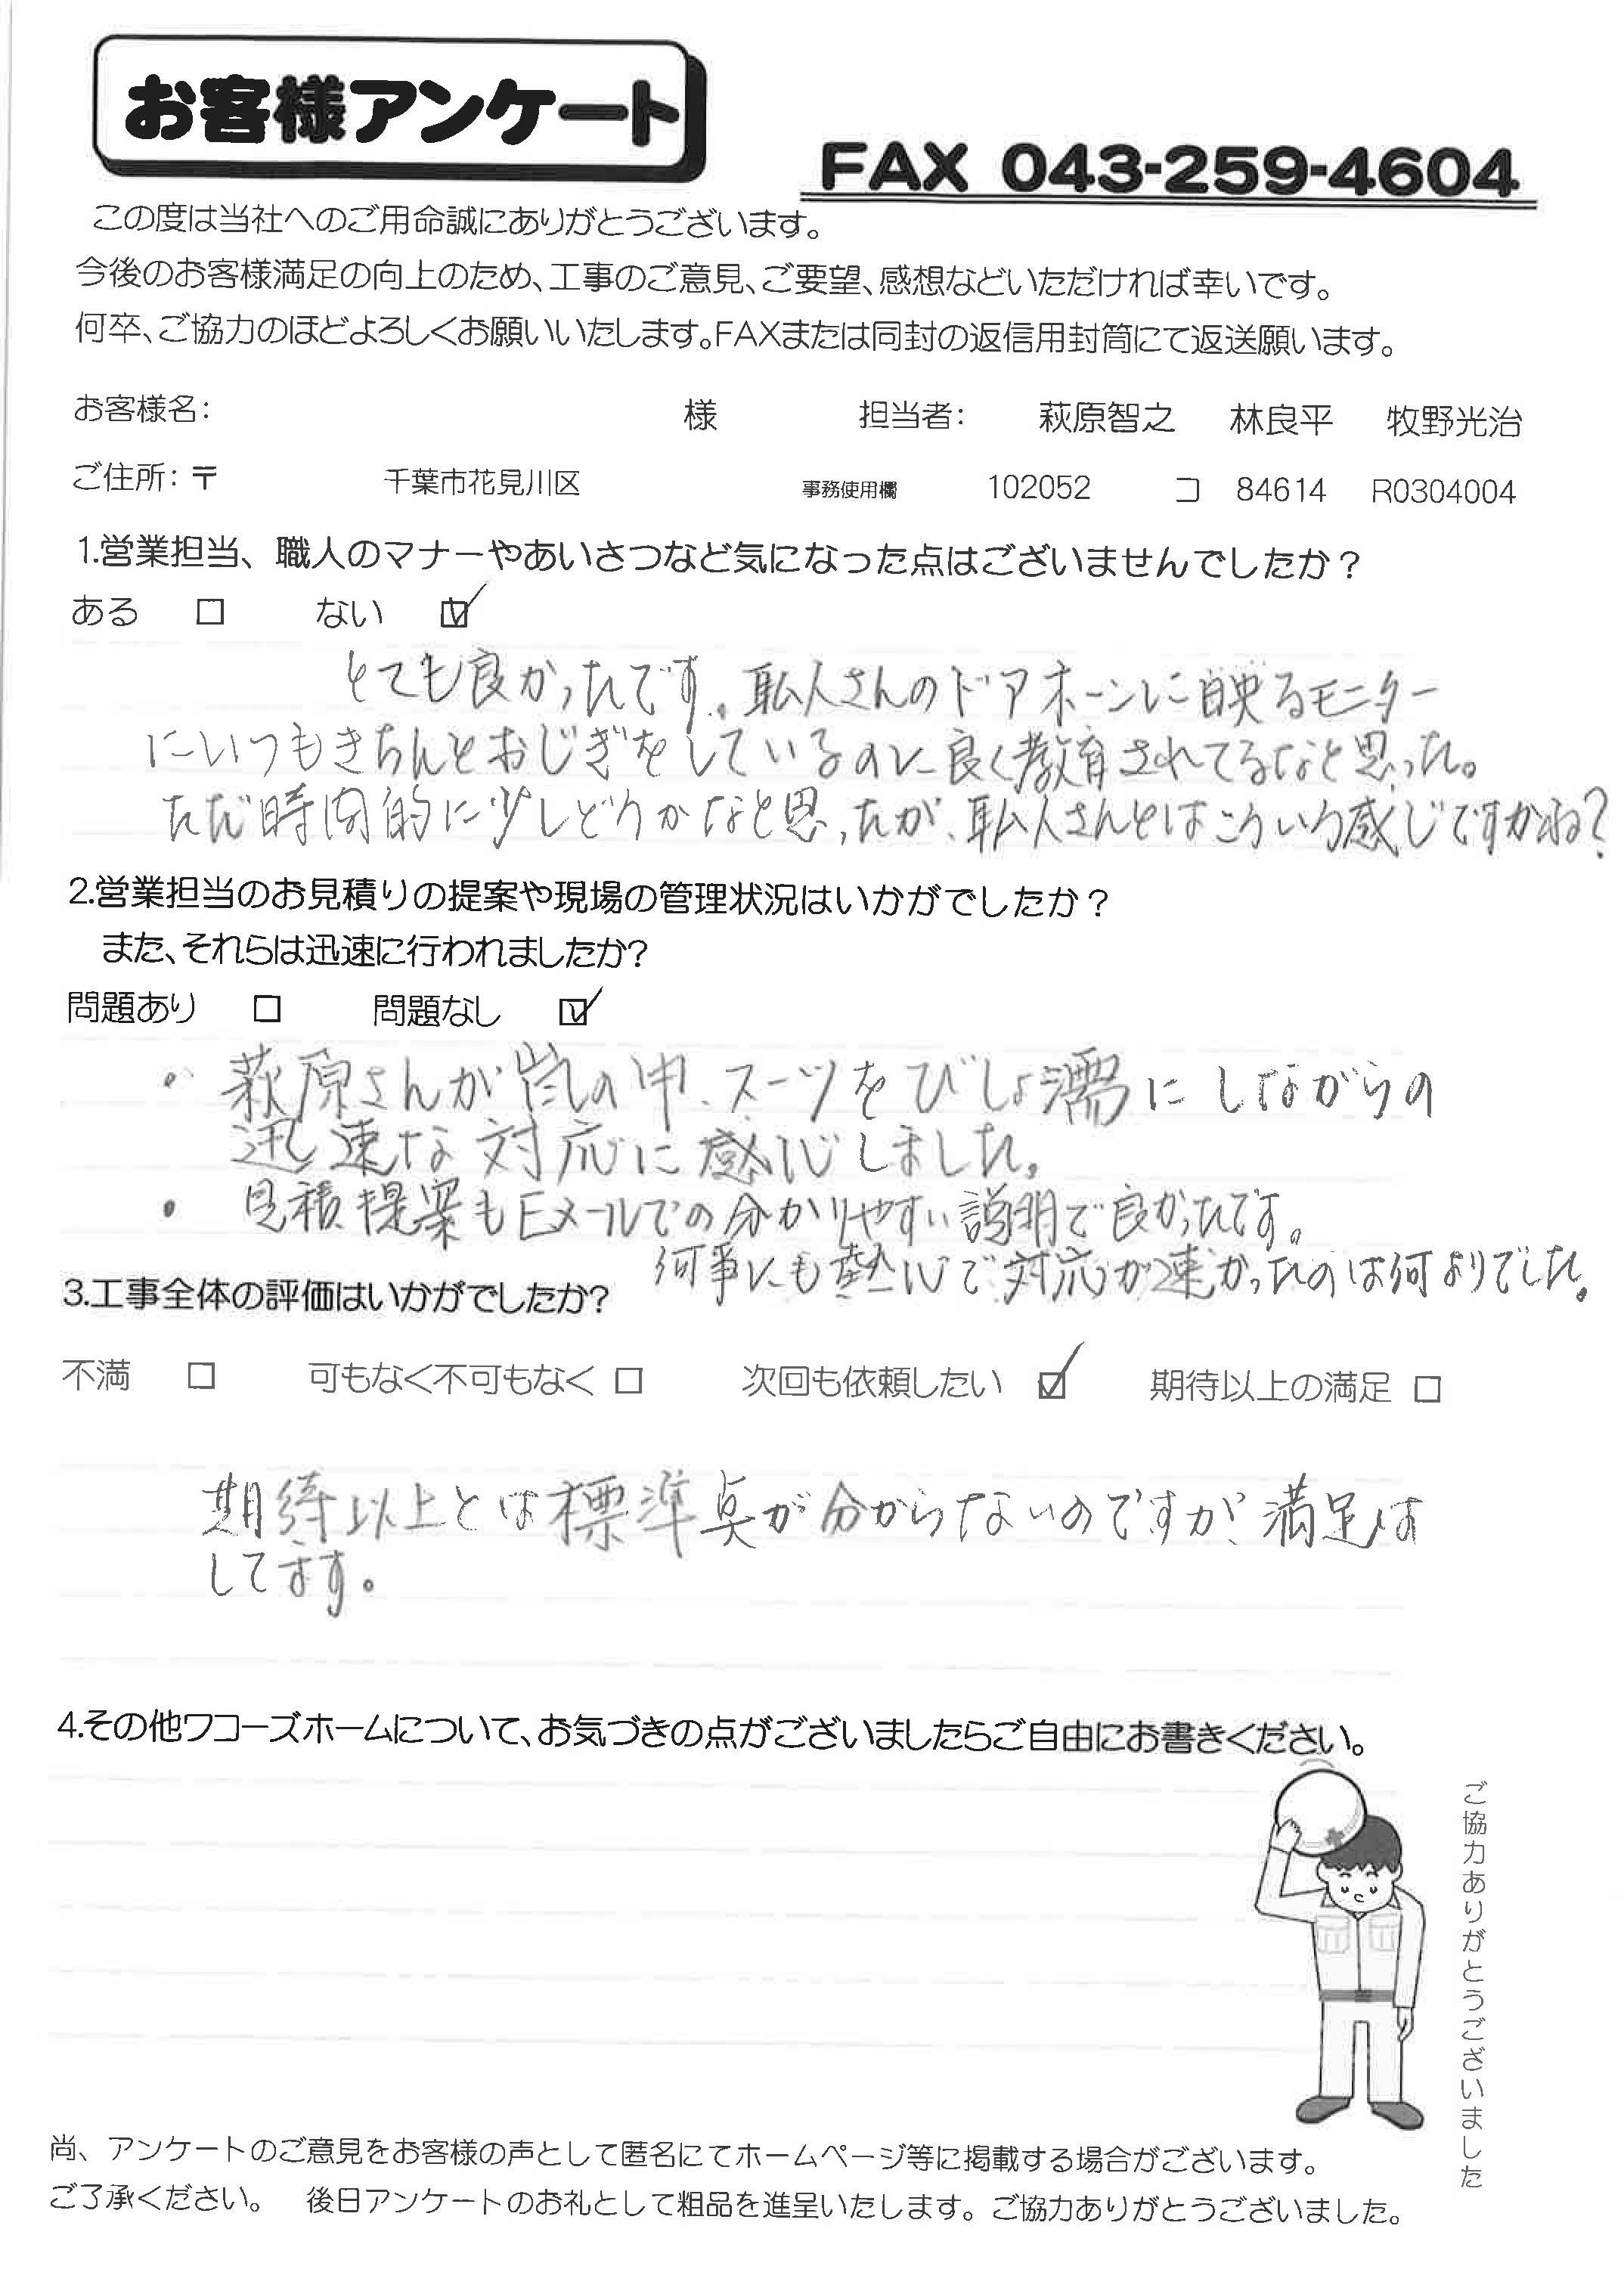 お客様アンケート
FAX 043-259-4604
この度は当社へのご用命誠にありがとうございます。
今後のお客様満足の向上のため、工事のご意見、ご要望、感想などいただければ幸いです。
何卒、ご協力のほどよろしくお願いいたします。FAXまたは同封の返信用封筒にて返送願います。
お客様名： 様 担当者： 萩原智之 林良平 牧野光治
ご住所：〒 千葉市花見川区 事務使用欄 102052 コ 84614 R0304004
1.営業担当、職人のマナーやあいさつなど気になった点はございませんでしたか？
ある □ ない ☑
とても良かったです。職人さんのドアホーンに映るモニター
にいつもきちんとおじぎをしているのに良く教育されてるなと思った。
ただ時間的に少しどうかなと思ったが、職人さんとはこういう感じですかね？
2.営業担当のお見積りの提案や現場の管理状況はいかがでしたか？
また、それらは迅速に行われましたか?
問題あり □ 問題なし ☑
・萩原さんが嵐の中、スーツをびしょ濡にしながらの
迅速な対応に感心しました。
・見積提案もEメールでの分かりやすい説明で良かったです。
何事にも熱心で対応が速かったのは何よりでした。
3.工事全体の評価はいかがでしたか?
不満 □ 可もなく不可もなく □ 次回も依頼したい ☑ 期待以上の満足 □
期待以上とは標準点が分からないのですが、満足は
してます。
4.その他ワコーズホームについて、お気づきの点がございましたらご自由にお書きください。
ご協力ありがとうございました
尚、アンケートのご意見をお客様の声として匿名にてホームページ等に掲載する場合がございます。
ご了承ください。 後日アンケートのお礼として粗品を進呈いたします。ご協力ありがとうございました。